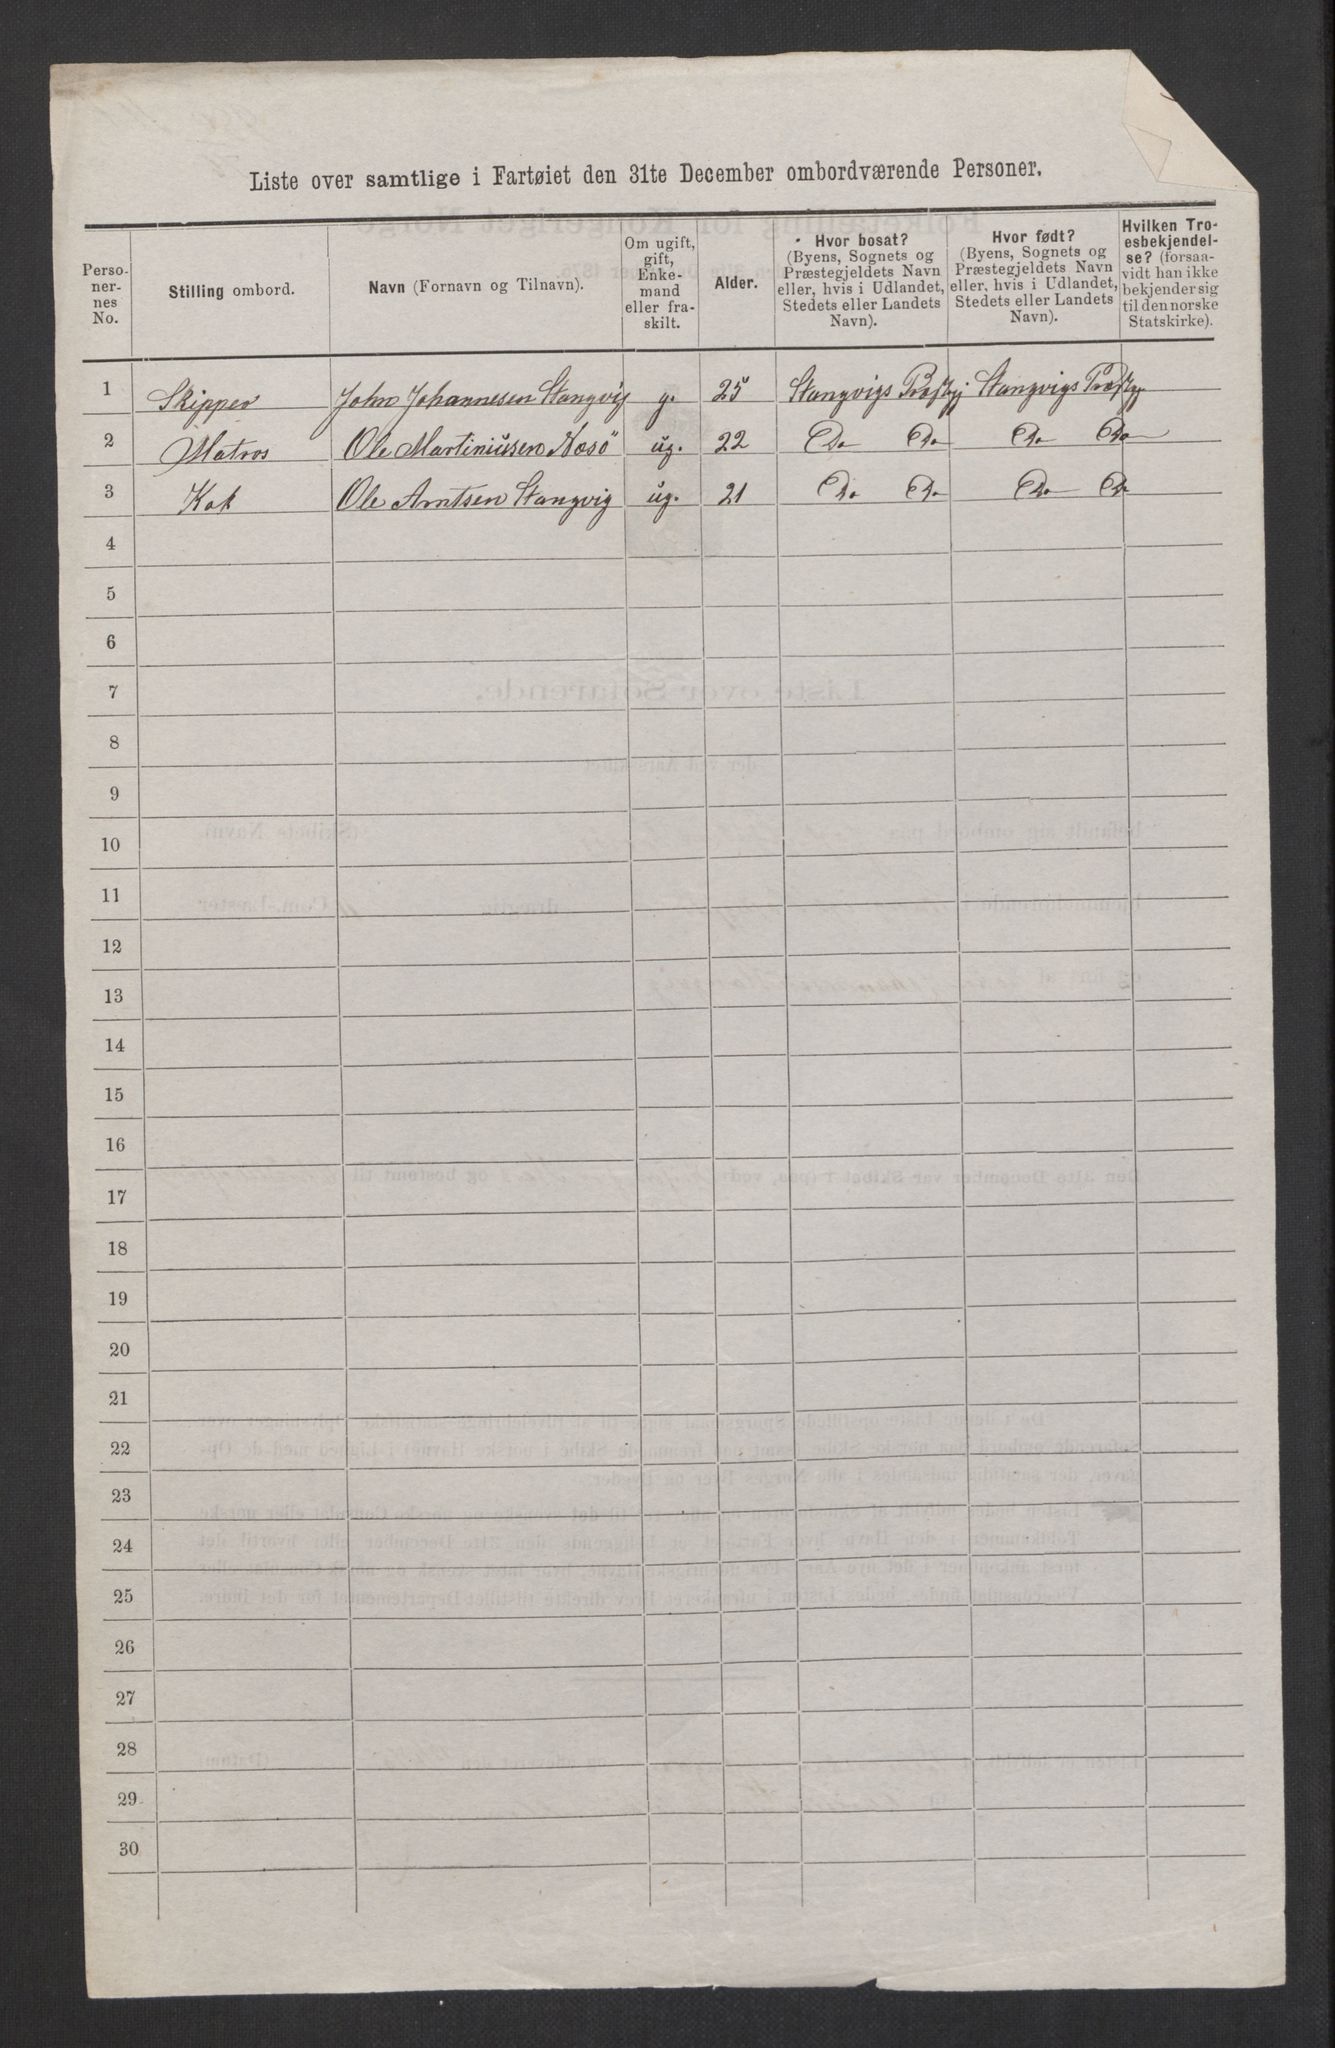 Liste over samtlige i Fartøiet den 31te December ombordværende Personer.
Perso-
ner-
nes
No.
Stilling ombord.
Navn (Fornavn og Tilnavn).
Om ugift,
gift,
Enke-
mand
eller fra-
skilt.
Alder.
Hvor bosat?
(Byens, Sognets og
Præstegjeldets Navn
eller, hvis i Udlandet,
Stedets eller Landets
Navn).
Hvor født?
(Byens, Sognets og
Præstegjeldets Navn
eller, hvis i Udlandet,
Stedets eller Landets
Navn).
Hvilken Tro-
esbekjendel-
se? (forsaa-
vidt han ikke
bekjender sig
til den norske
Statskirke).
1 Skipper John Johannesen Stangvig g. 25 Stangvigs Præstgj Stangvigs Præstgj
2 Matros Ole Martiniusen Nosö ug. 22 Do Do Do Do
3 Kok Ole Arntsen Stangvig ug. 21 Do Do Do Do
4
5
6
7
8
9
10
11
12
13
14
15
16
17
18
19
20
21
22
23
24
25
26
27
28
29
30